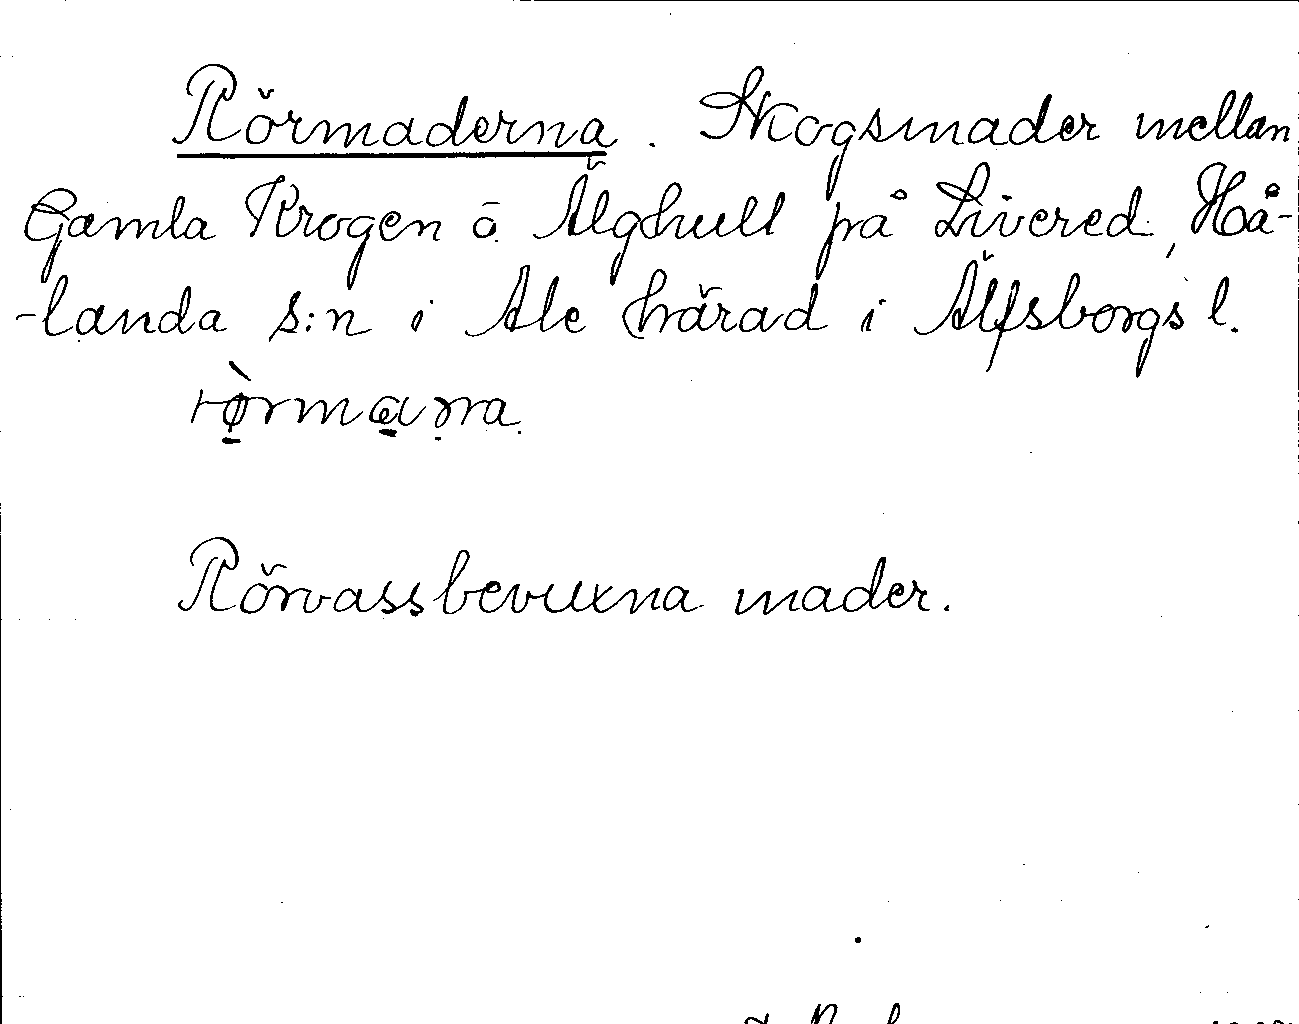 Rörmaderna. Skogsmader mellan
Gamla Krogen o. Älghult på Livered, Hå-
-landa s:n i Ale härad i Älfsborgs l.

Rörvassbevuxna mader.